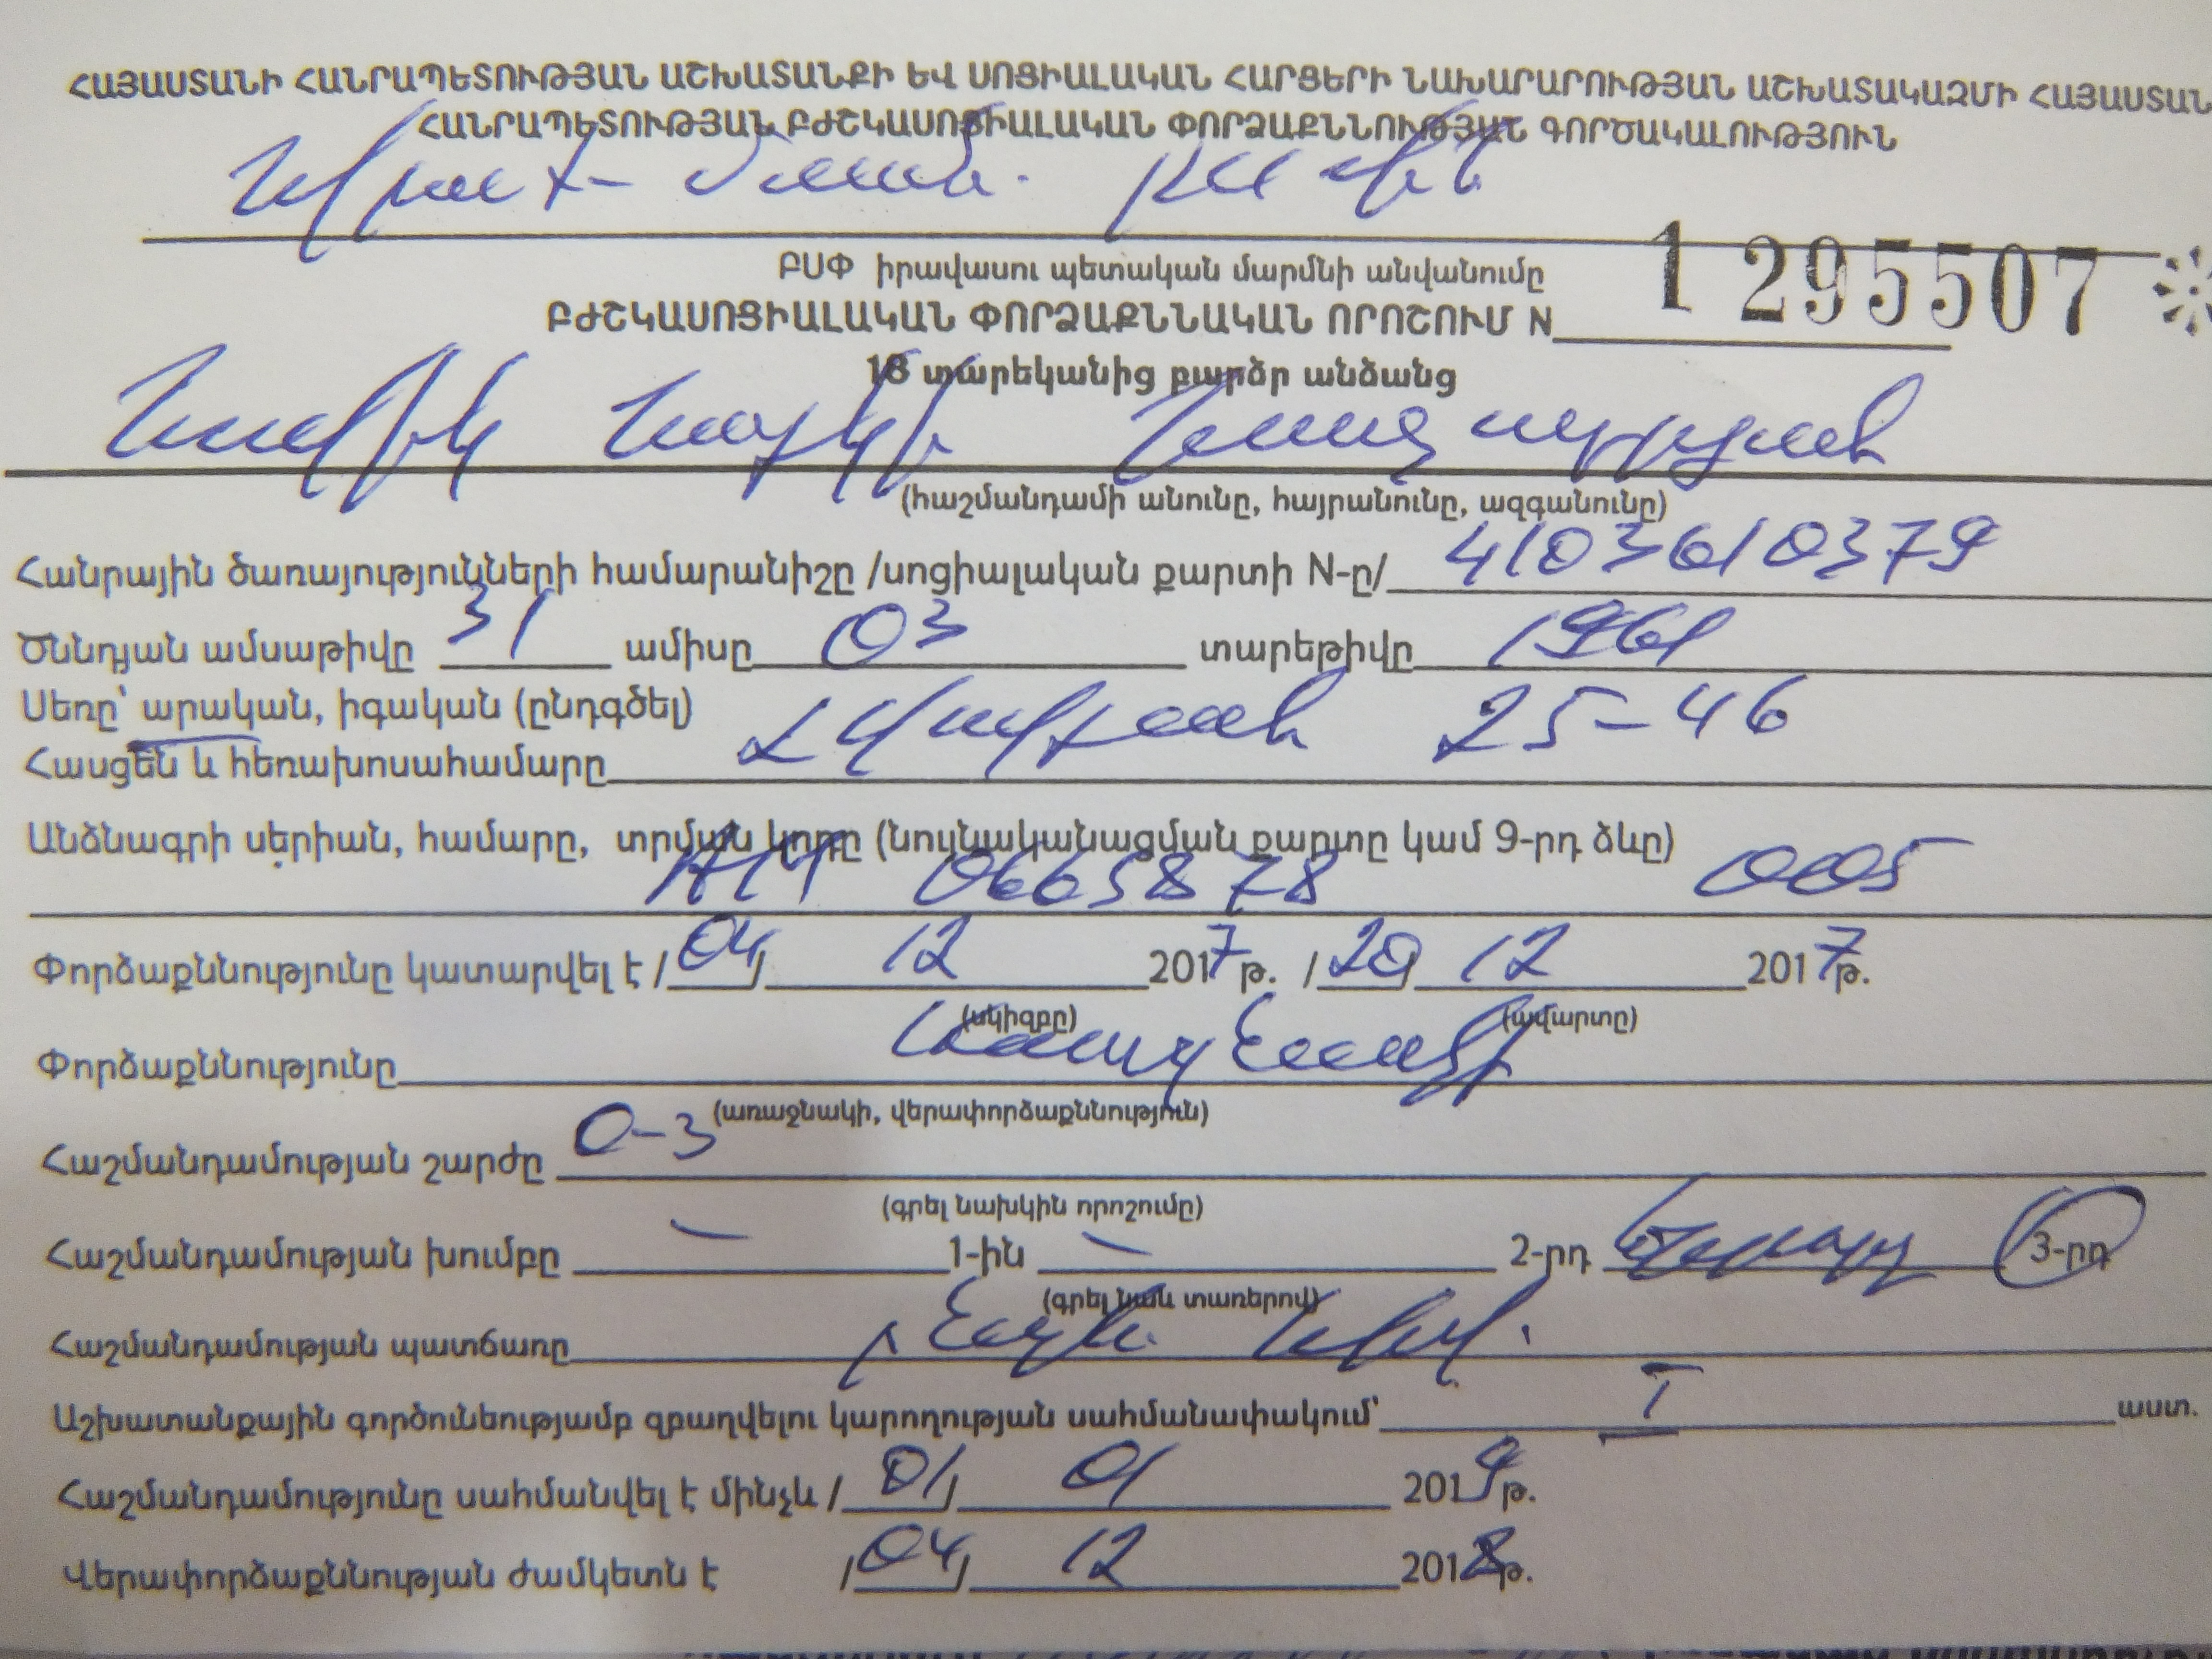 ՀԱՅԱՍՏԱՆԻ ՀԱՆՐԱՊԵՏՈՒԹՅԱՆ ԱՇԽԱՏԱՆՔԻ ԵՎ ՍՈՑԻԱԼԱԿԱՆ ՀԱՐՑԵՐԻ ՆԱԽԱՐԱՐՈՒԹՅԱՆ ԱՇԽԱՏԱԿԱԶՄԻ ՀԱՅԱՍՏԱՆ
ՀԱՆՐԱՊԵՏՈՒԹՅԱՆ ԲԺՇԿԱՍՈՑԻԱԼԱԿԱՆ ՓՈՐՁԱՔՆՆՈՒԹՅԱՆ ԳՈՐԾԱԿԱԼՈՒԹՅՈՒՆ
ԲՍՓ իրավասու պետական մարմնի անվանումը
ԲԺՇԿԱՍՈՑԻԱԼԱԿԱՆ ՓՈՐՁԱՔՆՆԱԿԱՆ ՈՐՈՇՈՒՄ N 1 295507
18 տարեկանից բարձր անձանց
(հաշմանդամի անունը, հայրանունը, ազգանունը)
Հանրային ծառայությունների համարանիշը /սոցիալական քարտի N-ը/ 4103610379
Ծննդյան ամսաթիվը 31 ամիսը 03 տարեթիվը 1961
Սեռը՝ արական, իգական (ընդգծել)
Հասցեն և հեռախոսահամարը 25-46
Անձնագրի սերիան, համարը, տրման կոդը (նույնականացման քարտը կամ 9-րդ ձևը)
AM 0665878 005
Փորձաքննությունը կատարվել է /04/ 12 2017թ. /20/ 12 2017թ.
(սկիզբը) (ավարտը)
Փորձաքննությունը
(առաջնակի, վերափորձաքննություն)
Հաշմանդամության շարժը 0-3
(գրել նախկին որոշումը)
Հաշմանդամության խումբը — 1-ին — 2-րդ երրորդ 3-րդ
(գրել նաև տառերով)
Հաշմանդամության պատճառը
Աշխատանքային գործունեությամբ զբաղվելու կարողության սահմանափակում՝ I աստ.
Հաշմանդամությունը սահմանվել է մինչև /01/ 01 2019թ.
Վերափորձաքննության ժամկետն է /04/ 12 2018թ.